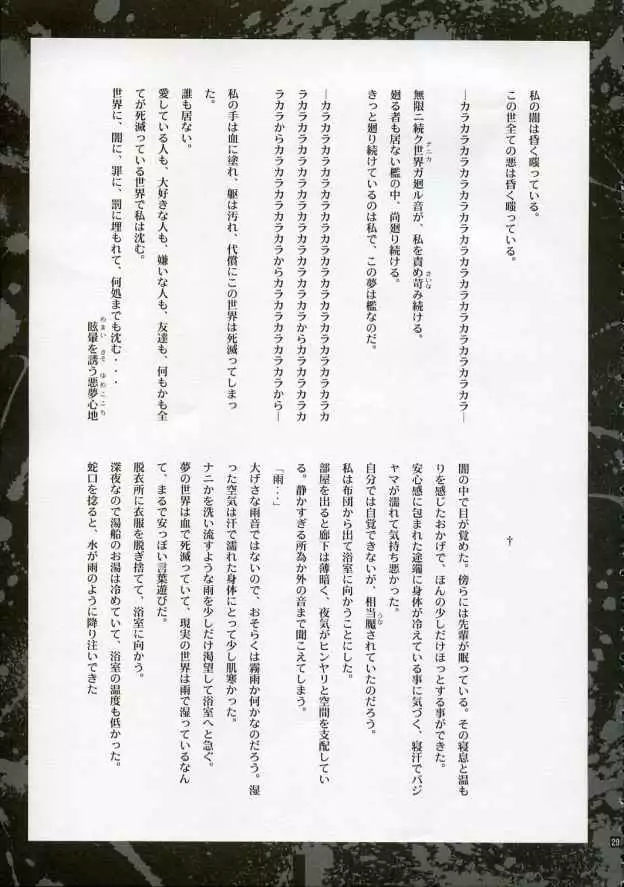 私の闇は昏く嗤っている。
この世全ての悪は昏く嗤っている。
―カラカラカラカラカラカラカラカラカラカラカラカラカラカラカラ―
無限ニ続ク世界ガ廻ル音が、私を責め苛み続ける。
廻る者も居ない檻の中、尚廻り続ける。
きっと廻り続けているのは私で、この夢は檻なのだ。
―カラカラカラカラカラカラカラカラカラカラカラカラカラカラカラカ
ラカラカラカラカラカラカラカラカラカラからカラカラカラカラカラカ
ラカラからカラカラカラカラカラからカラカラカラカラカラカラから―
私の手は血に塗れ、躯は汚れ、代償にこの世界は死滅ってしまっ
た。
誰も居ない。
愛している人も、大好きな人も、嫌いな人も、友達も、何もかも全
てが死滅っている世界で私は沈む。
世界に、闇に、罪に、罰に埋もれて、何処までも沈む・・・
眩暈を誘う悪夢心地
†
闇の中で目が覚めた。傍らには先輩が眠っている。その寝息と温も
りを感じたおかげで、ほんの少しだけほっとする事ができた。
安心感に包まれた途端に身体が冷えている事に気づく、寝汗でパジ
ャマが濡れて気持ち悪かった。
自分では自覚できないが、相当魘されていたのだろう。
私は布団から出て浴室に向かうことにした。
部屋を出ると廊下は薄暗く、夜気がヒンヤリと空間を支配してい
る。静かすぎる所為か外の音まで聞こえてしまう。
「雨・・・」
大げさな雨音ではないので、おそらくは霧雨か何かなのだろう。湿
った空気は汗で濡れた身体にとって少し肌寒かった。
ナニかを洗い流すような雨を少しだけ渇望して浴室へと急ぐ。
夢の世界は血で死滅っていて、現実の世界は雨で湿っているなん
て、まるで安っぽい言葉遊びだ。
脱衣所に衣服を脱ぎ捨てて、浴室に向かう。
深夜なので湯船のお湯は冷めていて、浴室の温度も低かった。
蛇口を捻ると、水が雨のように降り注いできた
29